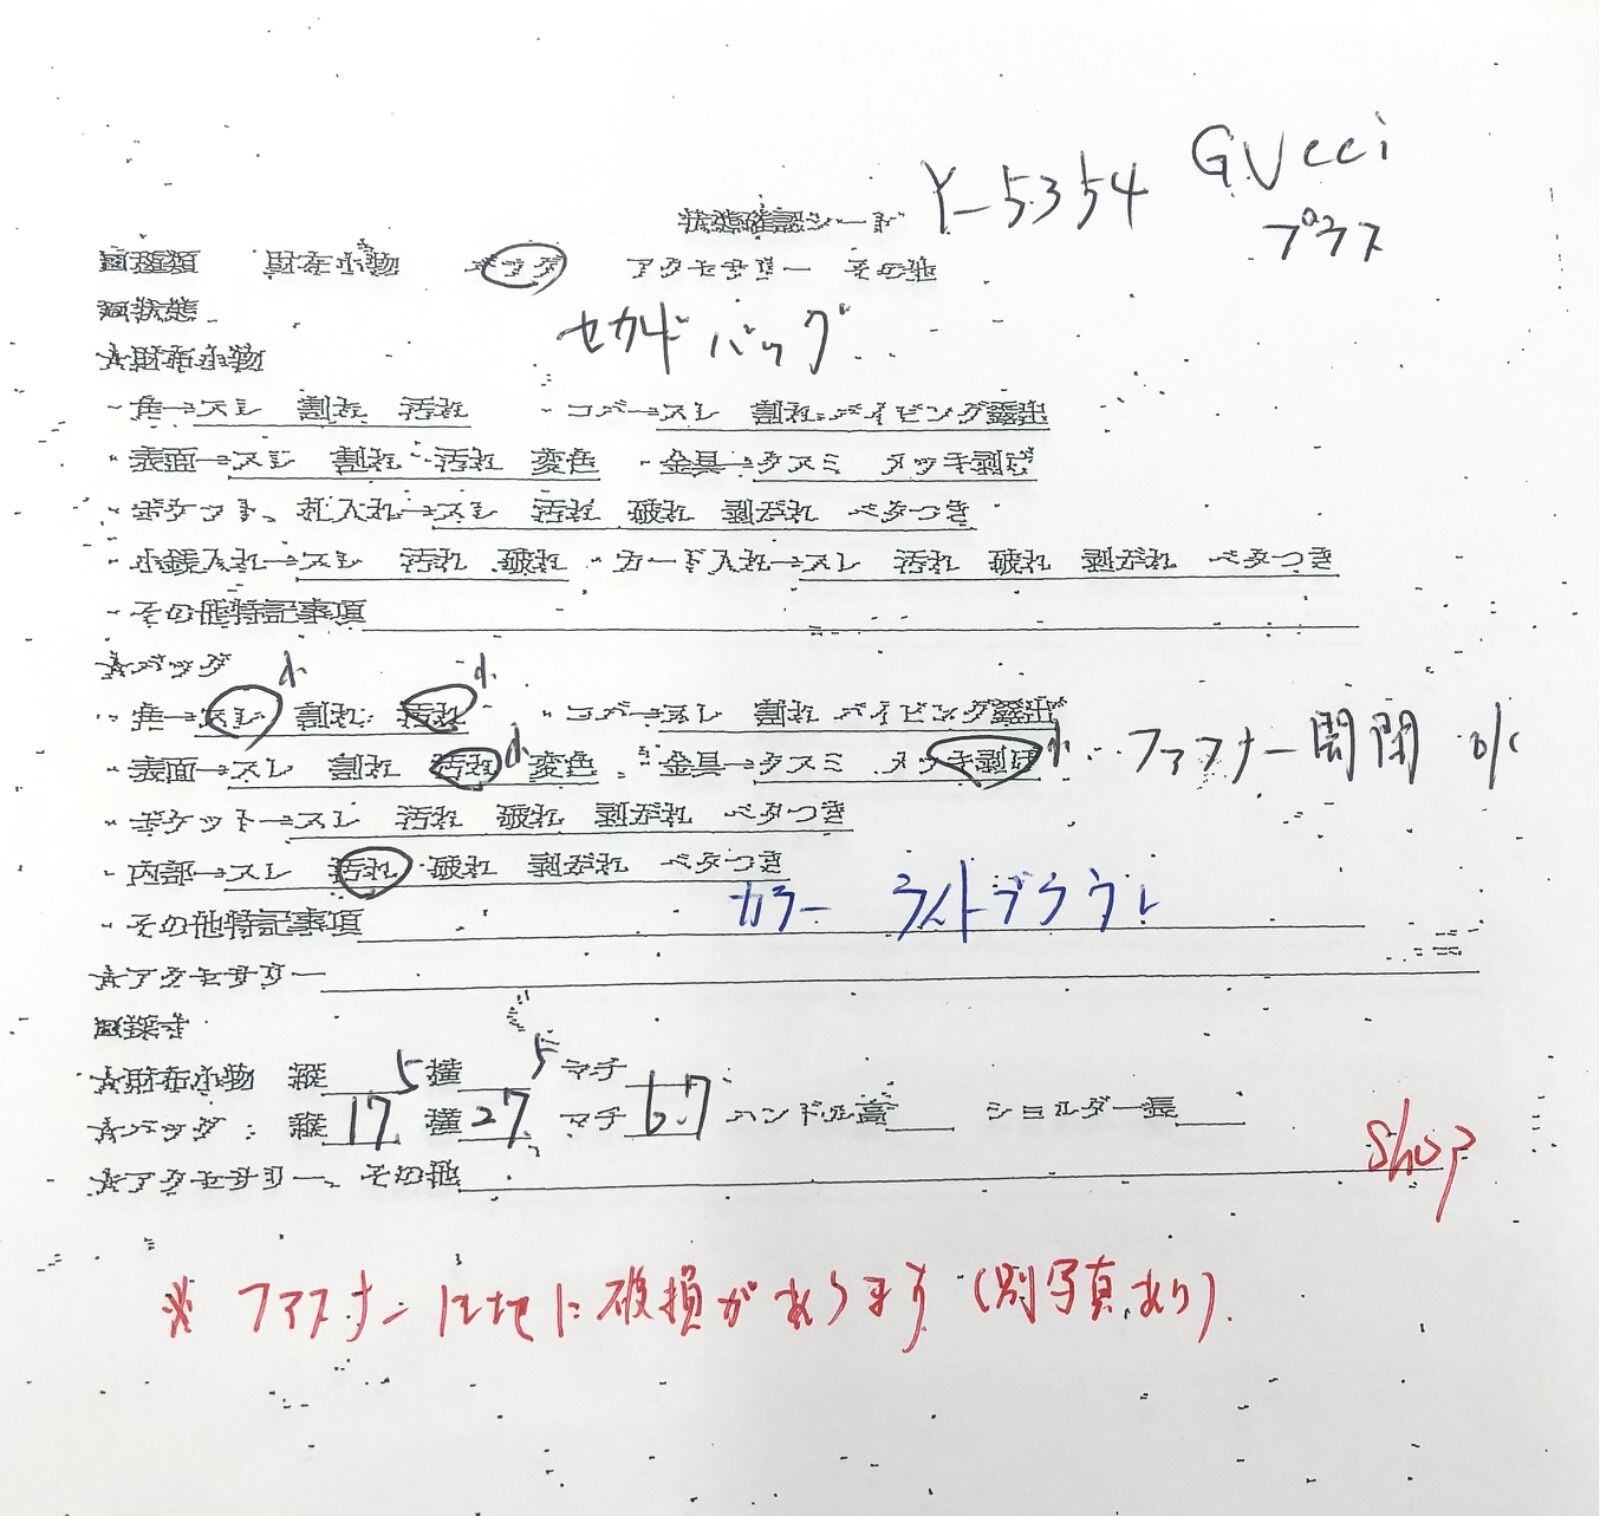 Y-5354 GUcci
プラス
状態確認シート
■種類 財布小物 バッグ アクセサリー その他
■状態
セカンドバッグ
★財布小物
・角→スレ 割れ 汚れ ・コバ→スレ 割れ パイピング露出
・表面→スレ 割れ 汚れ 変色 ・金具→クスミ メッキ剥げ
・ポケット、札入れ→スレ 汚れ 破れ 剥がれ ベタつき
・小銭入れ→スレ 汚れ 破れ ・カード入れ→スレ 汚れ 破れ 剥がれ ベタつき
・その他特記事項
★バッグ 小 小
・角→スレ 割れ 汚れ ・コバ→スレ 割れ パイピング露出
・表面→スレ 割れ 汚れ 小 変色 ・金具→クスミ メッキ剥げ 小 ファスナー開閉 ok
・ポケット→スレ 汚れ 破れ 剥がれ ベタつき
・内部→スレ 汚れ 破れ 剥がれ ベタつき
カラー ライトブラウン
・その他特記事項
★アクセサリー
■採寸
★財布小物 縦 横 マチ
★バッグ 縦 17.5 横 27.5 マチ 6.7 ハンドル高 ショルダー長
shop
★アクセサリー、その他
※ ファスナー生地に破損があります (別写真あり).